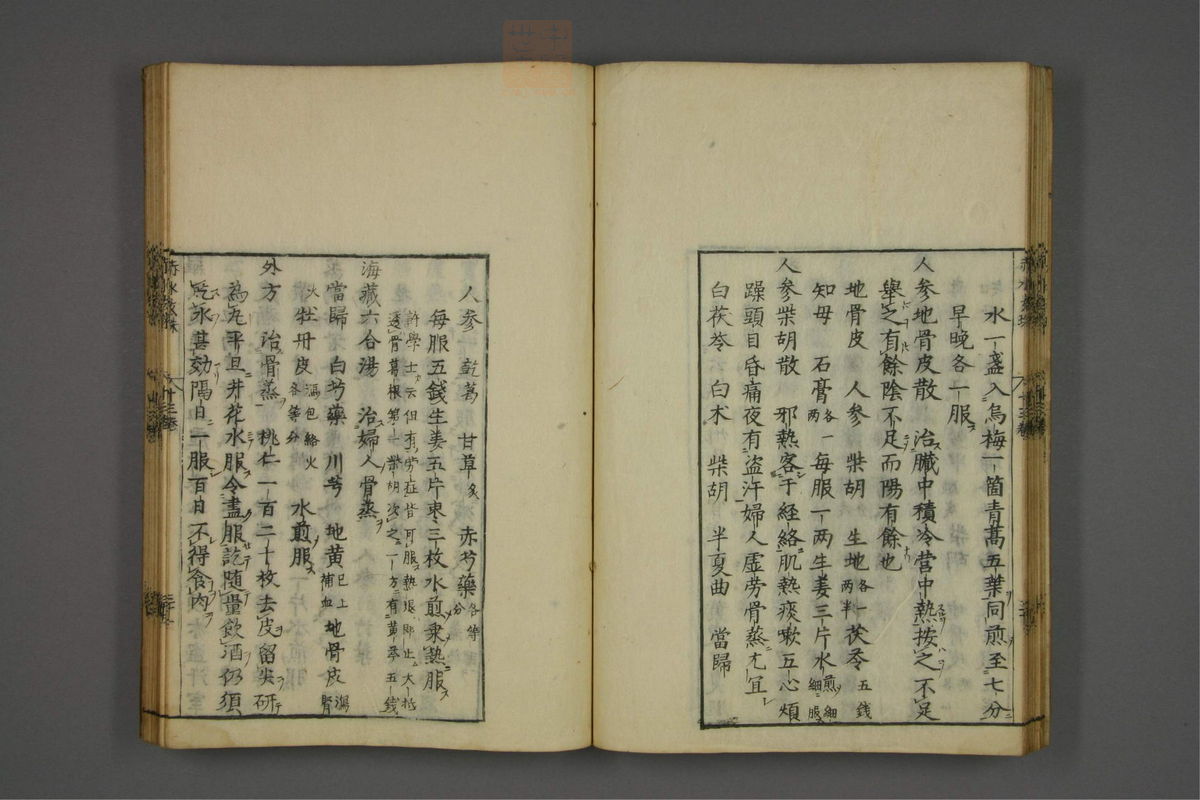 水一盞入烏梅一箇青蒿五葉同煎至七分
早晚各一服
人參地骨皮散 治臟中積冷營中熱按之不足
舉之有餘陰不足而陽有餘也
地骨皮 人參 柴胡 生地各一兩半 茯苓五錢
知母 石膏各一兩 每服一兩生姜三片水煎細細服
人參柴胡散 邪熱客于経絡肌熱痰嗽五心煩
躁頭目昏痛夜有盜汗婦人虛劳骨蒸尤宜
白茯苓 白术 柴胡 半夏曲 當歸
人參 乾葛 甘草炙 赤芍藥各等分
每服五錢生姜五片枣三枚水煎乘熱服
許學士云但有劳症皆可服熱退即止大抵
透骨葛根第一柴胡次之一方有黄芩五錢
海藏六合湯 治婦人骨蒸
當歸 白芍藥 川芎 地黄已上補血 地骨皮瀉腎
火 牡丹皮瀉包絡火各等分 水煎服
外方 治骨蒸 桃仁一百二十枚去皮留尖研
為丸平旦井花水服令盡服訖隨量飲酒仍須
吃水甚効隔日一服百日不得食肉